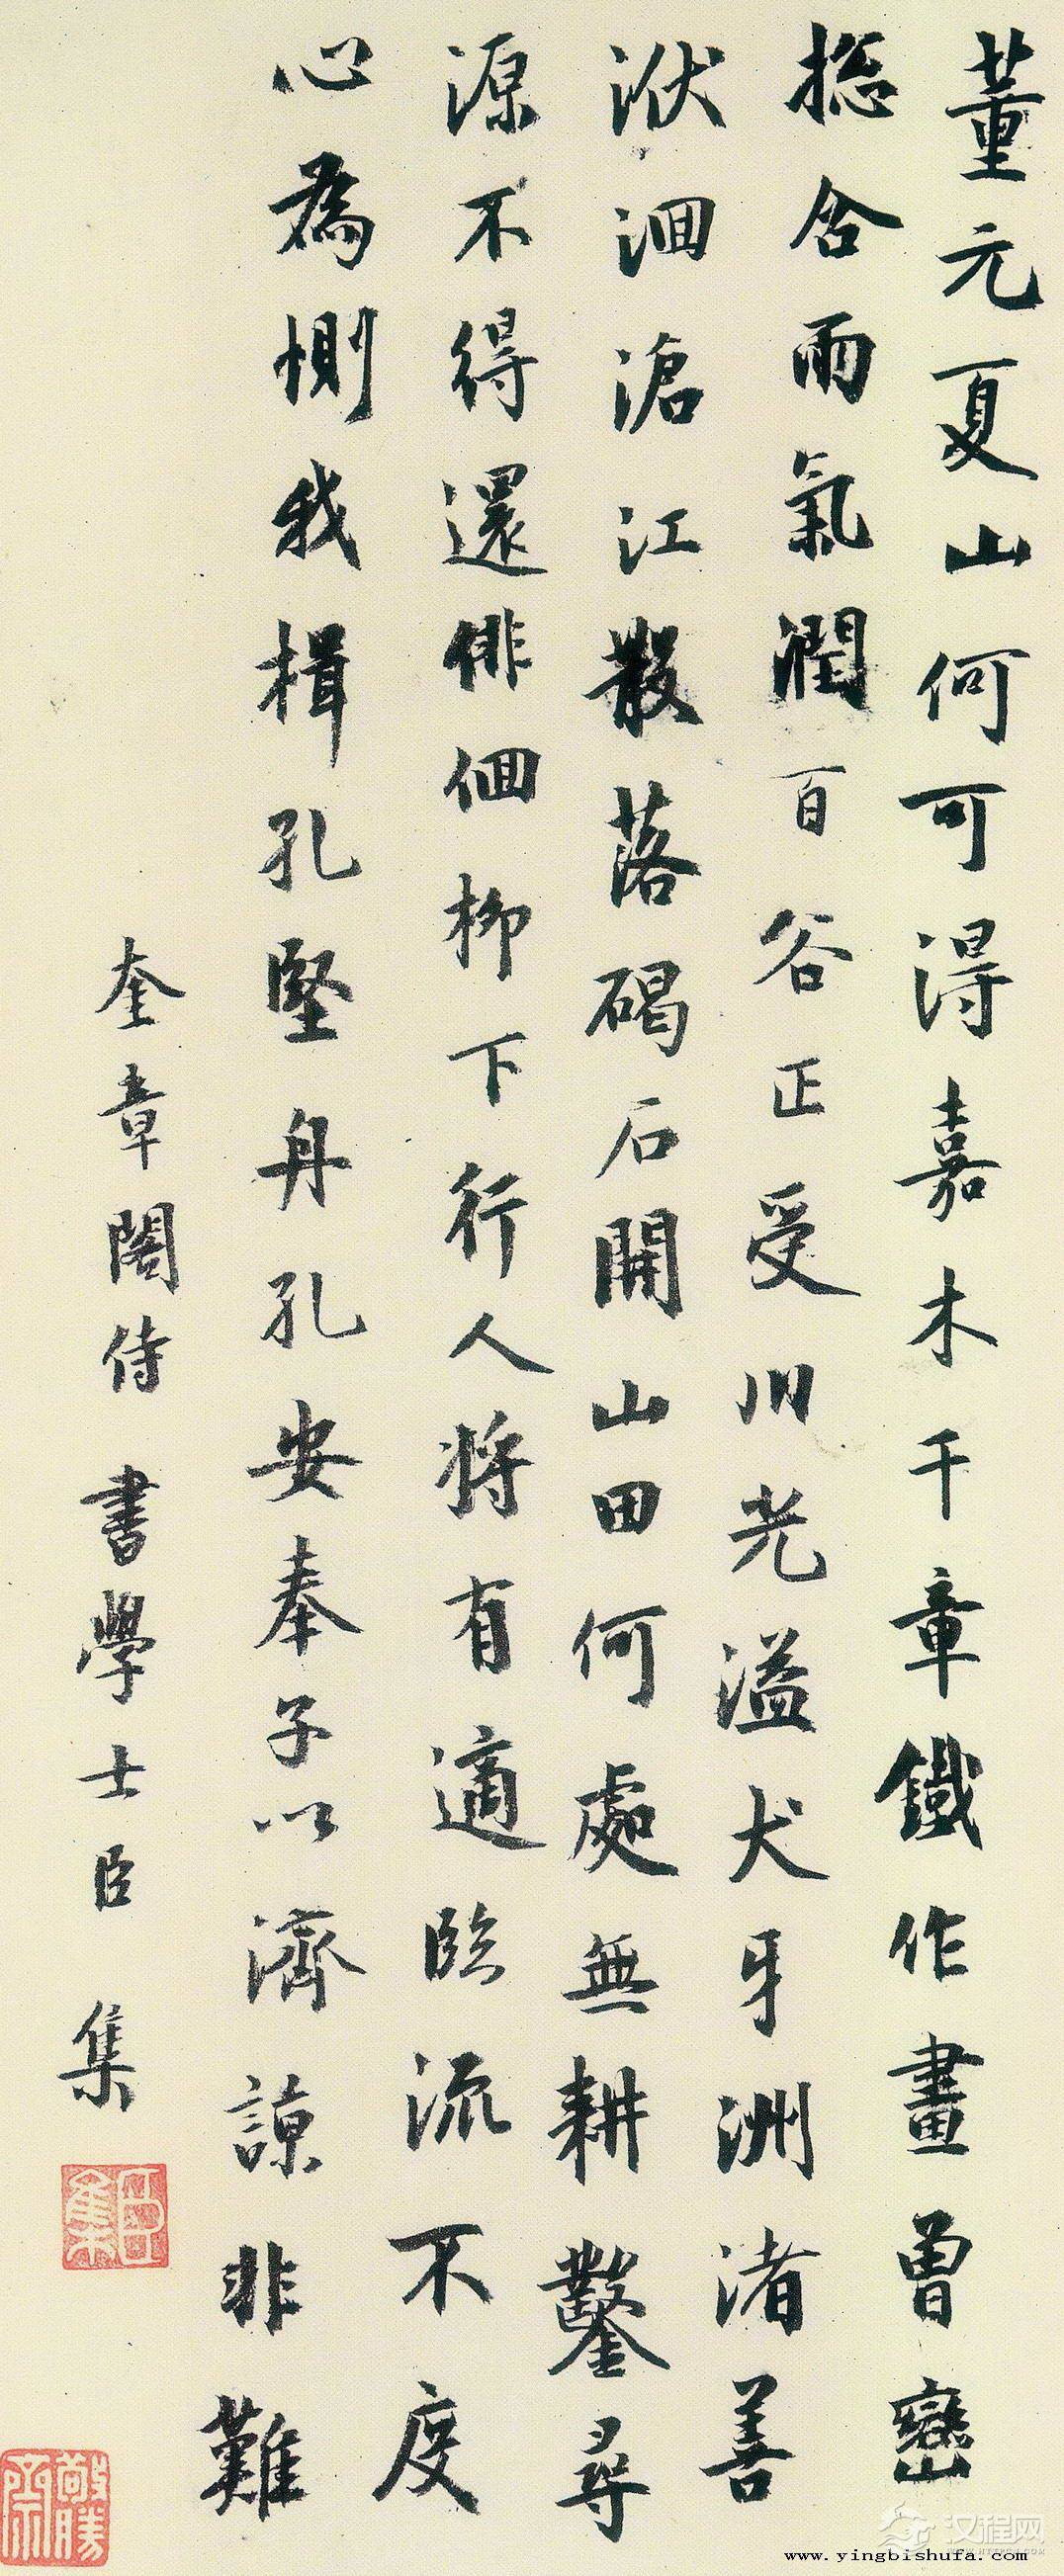 董元夏山何可得嘉木千章鐵作畫曾巒
捴含雨氣潤百谷正受川光溢犬牙洲渚善
洑洄滄江散落碣石開山田何處無耕鑿尋
源不得還俳佪柳下行人將有適臨流不度
心為惻我楫孔堅舟孔安奉子以濟諒非難
奎章閣侍書學士臣集
臣集
汉程网
www.yingbishufa.com